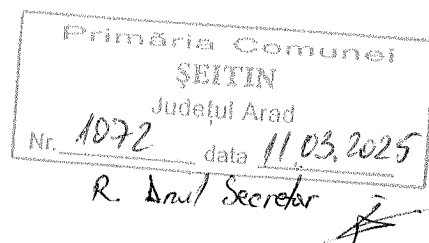 Primăria Comunei
ŞEITIN
Județul Arad
Nr. 1072 data 11.03.2025
R. Secretar